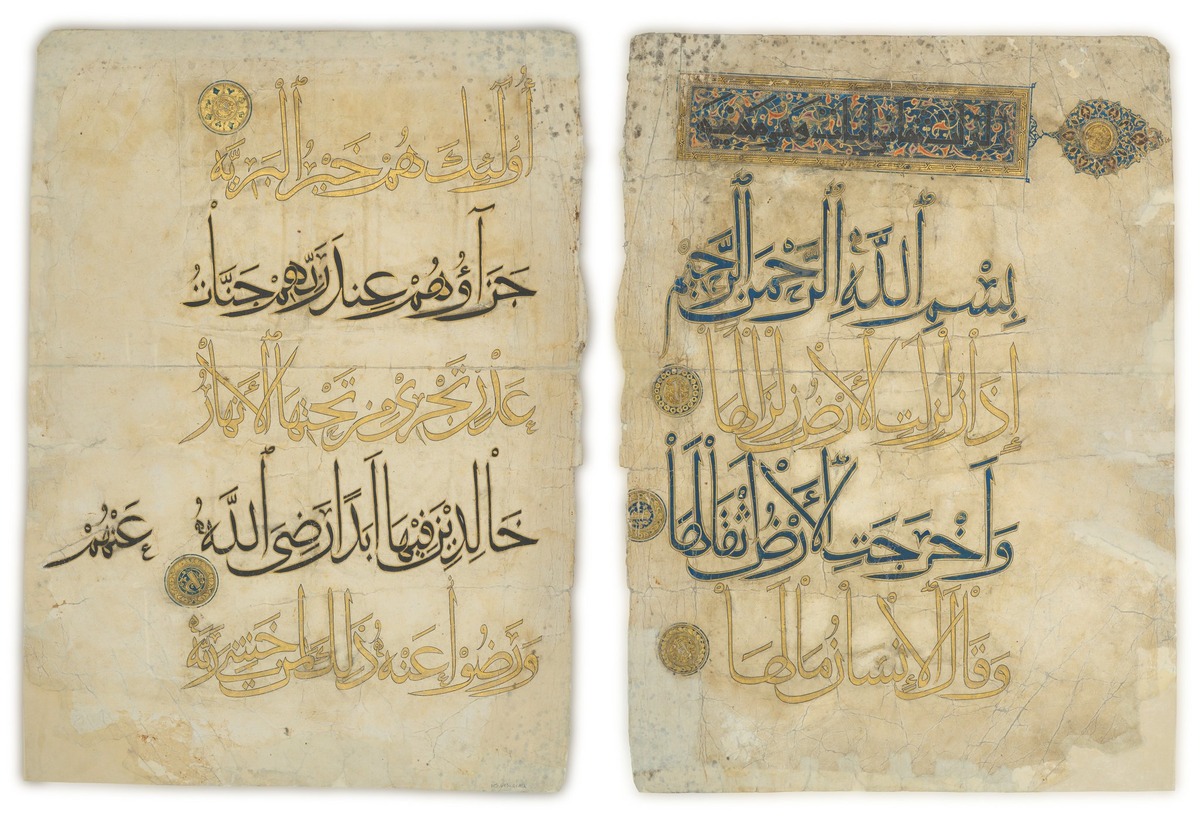 أُولَئِكَ هُمْ خَيْرُ الْبَرِيَّةِ
جَزَآؤُهُمْ عِندَ رَبِّهِمْ جَنَّاتُ
عَدْنٍ تَجْرِي مِن تَحْتِهَا الْأَنْهَارُ
خَالِدِيْنَ فِيْهَا أَبَدًا رَضِيَ اللَّهُ عَنْهُمْ
وَرَضُوا عَنْهُ ذَلِكَ لِمَنْ خَشِيَ رَبَّهُ
بِسْمِ اللَّهِ الرَّحْمَنِ الرَّحِيمِ
إِذَا زُلْزِلَتِ الْأَرْضُ زِلْزَالَهَا
وَأَخْرَجَتِ الْأَرْضُ أَثْقَالَهَا
وَقَالَ الْإِنْسَانُ مَا لَهَا